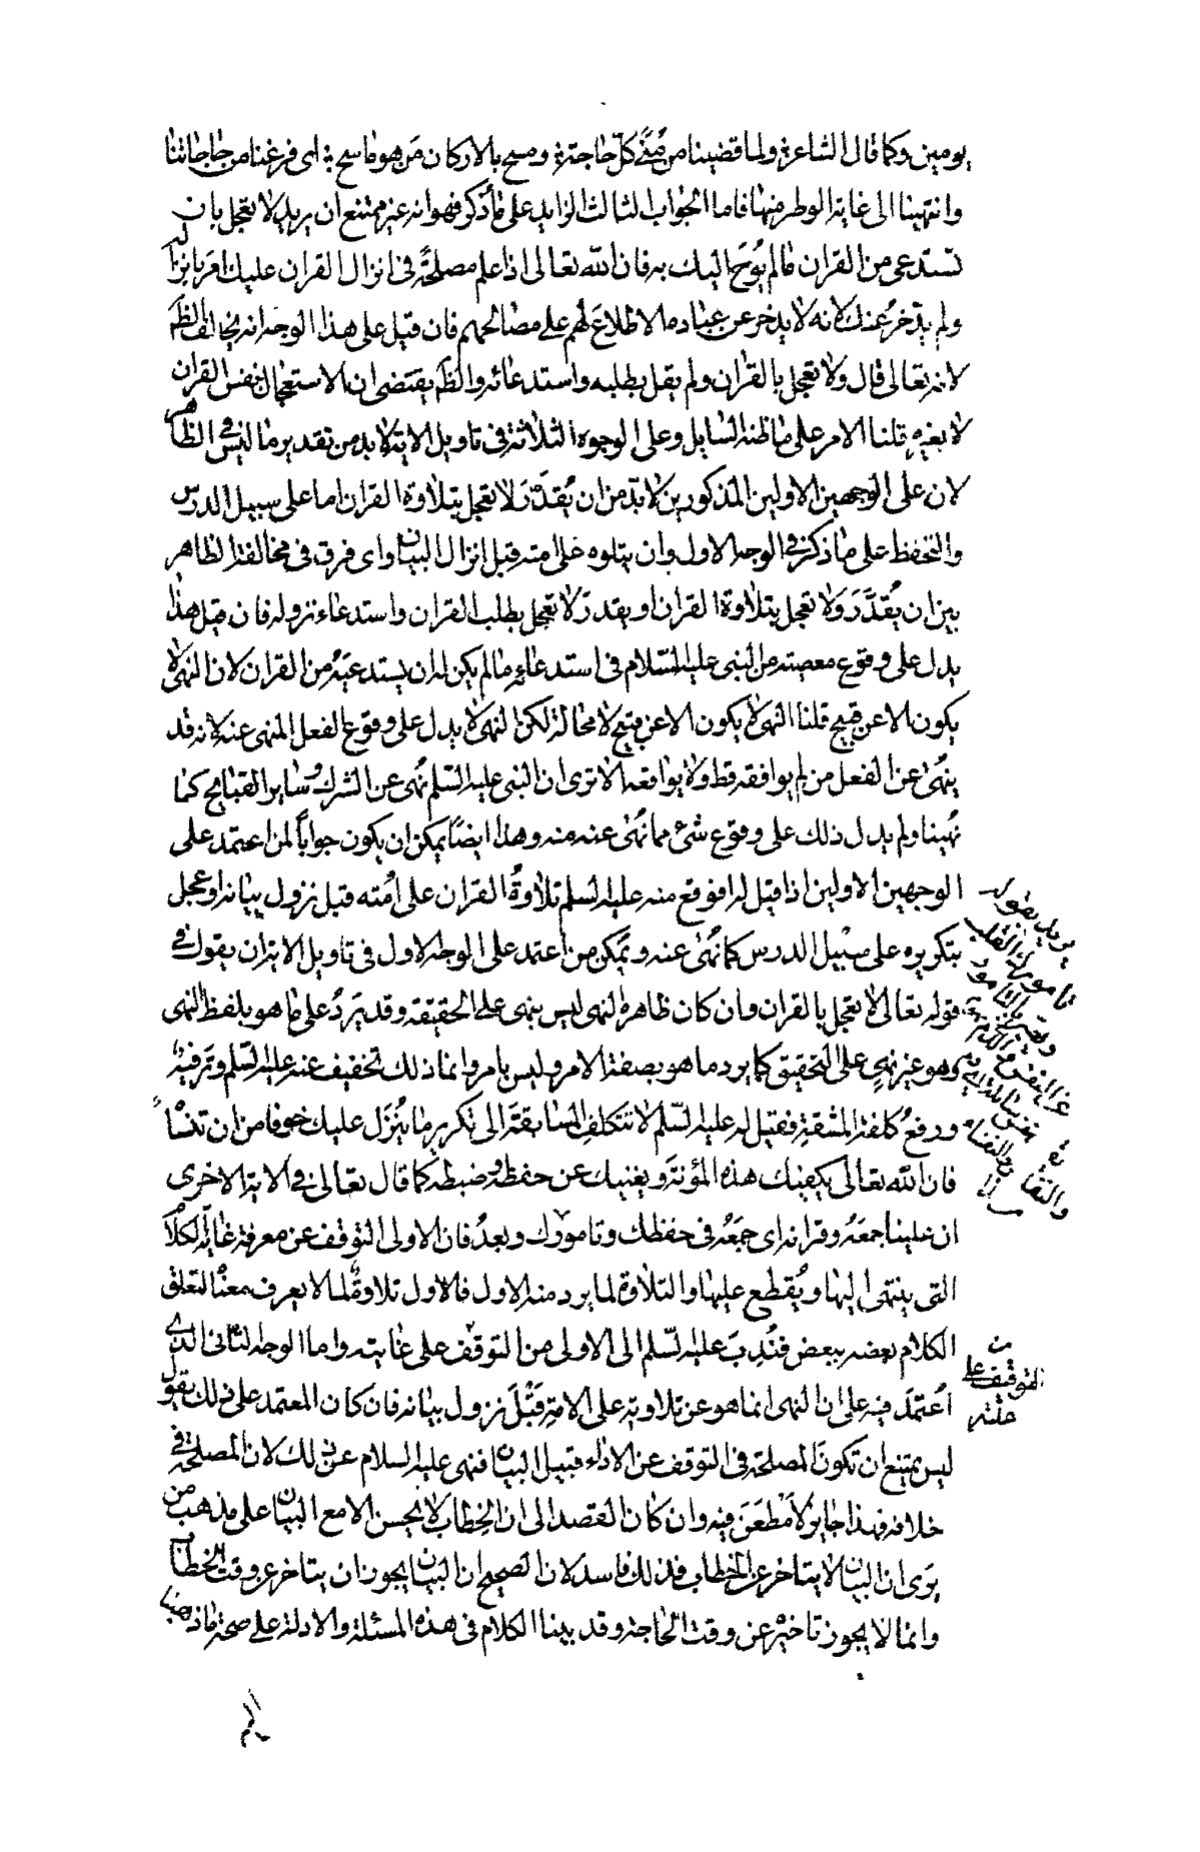 يومين وكما قال الشاعر ولما قضينا من مُنًى كلّ حاجة ومسح بالاركان مَن هو ماسح اى فرغنا من حاجاتنا
وانتهينا الى غاية الوطر منها فاما الجواب الثالث الزايد على ما ذكر فهو انه غير ممتنع ان يريد لا تعجل بان
تستدعى من القران ما لم يُوحَ اليك به فان الله تعالى اذا علم مصلحةً فى انزال القران عليك امر بانزاله
ولم يدّخرْ عنك لانه لا يدخر عن عباده الاطلاعَ لهم على مصالحهم فان قيل على هذا الوجه انه يخالف الظم
لانه تعالى قال ولا تعجل بالقران ولم يقل بطلبه واستدعائه والظم يقتضى ان الاستعجال بنفس القران
لا بغيره قلنا الامر على ما ظنه السايل وعلى الوجوه الثلاثة فى تاويل الاية لا بد من تقدير ما ليس فى الظاهر
لان على الوجهين الاولين المذكورين لا بدّ من ان يُقدَّرَ لا تعجل بتلاوة القران اما على سبيل الدرس
والتحفظ على ما ذكر فى الوجه الاول وان يتلوه على امته قبل انزال البيان واى فرق فى مخالفة الظاهر
بين ان يُقدَّرَ وَلا تعجل بتلاوة القران او يقدرَ لا تعجل بطلب القران واستدعاء نزوله فان قيل هذا
يدل على وقوع معصية من النبى عليه السلام فى استدعاء ما لم يكن له ان يستدعيَهُ من القران لان النهى لا
يكون الا عن قبيح قلنا النهى لا يكون الا عن قبيح لا محالة لكن النهى لا يدل على وقوع الفعل المنهى عنه لانه قد
يُنهى عن الفعل من لم يوافقه قط ولا يوافعه الا ترى ان النبى عليه السلم نُهى عن الشرك وساير القبايح كما
نُهينا ولم يدل ذلك على وقوع شىء مما نُهى عنه منه وهذا ايضًا يمكن ان يكون جواباً لمن اعتمد على
الوجهين الاولين اذا قيل له افوقع منه عليه السلم تلاوةُ القران على امّته قبل نزول بيانه او عجل
بتكريره على سبيل الدرس كما نُهى عنه ويمكن من اعتمد على الوجه الاول فى تاويل الاية ان يقول فى
قوله تعالى لا تعجل بالقران وان كان ظاهره النهى ليس بنهى على الحقيقة وقد يَردُ على ما هو بلفظ النهى
وهو غير نهىٍ على التحقيق كما يرد ما هو بصفة الامر وليس بامر وانما ذلك تخفيف عنه عليه السلم وترفيهٌ
ورفعُ كلفة المشقة فقيل له عليه السلم لا تتكلفِ المسابقةَ الى تكرير ما يُنزَل عليك خوفا من ان تنساه
فان الله تعالى يكفيك هذه المؤنةَ ويغنيك عن حفظه وضبطه كما قال تعالى فى الاية الاخرى
ان علينا جمعَهُ وقرانه اى جمعَهُ فى حفظك وتامورك وبعدُ فان الاولى التوقف عن معرفة غاية الكلام
التى ينتهى اليها ويُقطع عليها والتلاوة لما يرد منه الاول فالاول تلاوةٌ لما لا يعرف معناه لتعلق
الكلام بعضه ببعض فنُدِبَ عليه السلم الى الاولى من التوقف على غايته واما الوجه الثانى الذى
اُعتُمدَ فيه على ان النهى انما هو عن تلاوته على الامة قَبْلَ نزول بيانه فان كان المعتمد على ذلك يقول
ليس يمتنع ان تكونَ المصلحة فى التوقف عن الاداء قبل البيان فنهى عليه السلام عن ذلك لان المصلحة فى
خلافه فهذا جايز لا مَطْعَنَ فيه وان كان القصد الى ان الخِطاب لا يحسن الا مع البيان على مذهب من
يرَى ان البيان لا يتاخر عن الخطاب فذلك فاسد لان الصحيح ان البيان يجوز ان يتاخر عن وقت الخطاب
وانما لا يجوز تاخيره عن وقت الحاجة وقد بينا الكلام فى هذه المسئلة والادلة على صحة ما ذهبنا
يريد بقوله
تامورك القلب
من
التوقيف على